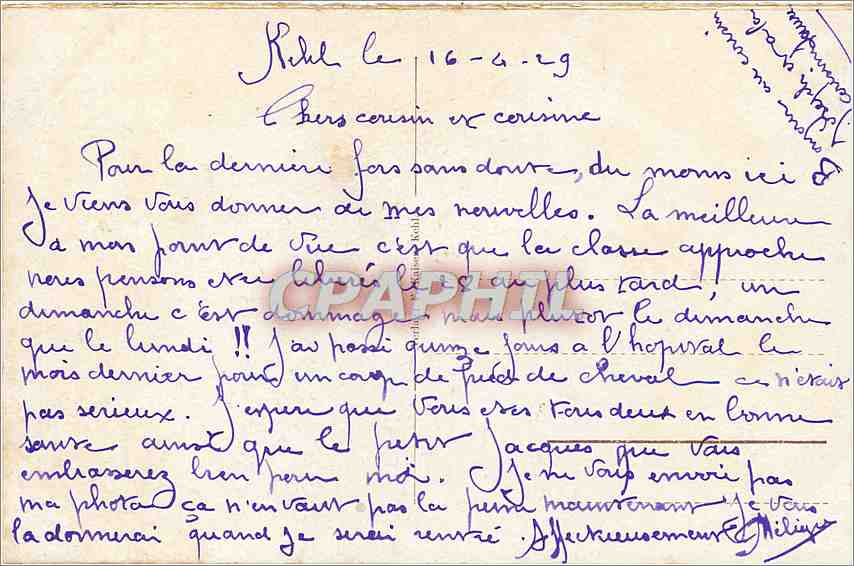 Kehl le 16-4-29
Chers cousin et cousine
Pour la dernière fois sans doute, du moins ici
je viens vous donner de mes nouvelles. La meilleure
a mon point de vue c'est que la classe approche
nous pensons etre libérés le 28 au plus tard, un
dimanche c'est dommage mais plutot le dimanche
que le lundi !! J'ai passé quinze jours a l'hopital le
mois dernier pour un coup de pied de cheval ce n'était
pas serieux. J'espere que vous etes tous deux en bonne
sante ainsi que le petit Jacques que vous
embrasserez bien pour moi. Je ne vous envoi pas
ma photo ça n'en vaut pas la peine maintenant je vous
la donnerai quand je serai rentré. Affectueusement
CPAPHIL